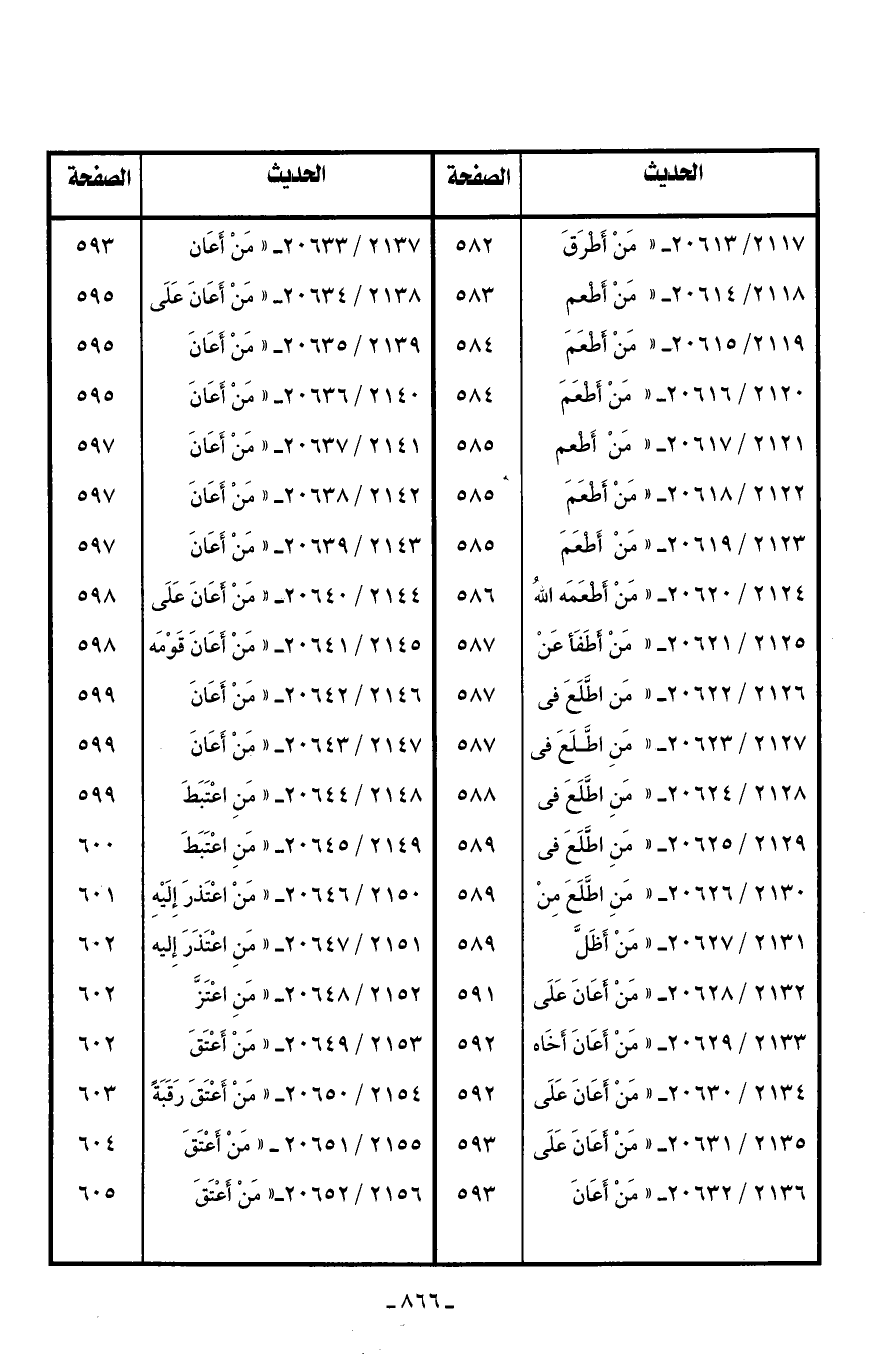 الحديث الصفحة الحديث الصفحة
٢١١٧/ ٢٠٦١٣ـ « مَنْ أَطْرَقَ ٥٨٢ ٢١٣٧ / ٢٠٦٣٣ـ « مَنْ أَعَان ٥٩٣
٢١١٨/ ٢٠٦١٤ـ « مَنْ أَطْعم ٥٨٣ ٢١٣٨ / ٢٠٦٣٤ـ « مَنْ أَعَانَ عَلَى ٥٩٥
٢١١٩/ ٢٠٦١٥ـ « مَنْ أَطْعَمَ ٥٨٤ ٢١٣٩ / ٢٠٦٣٥ـ « مَنْ أَعَانَ ٥٩٥
٢١٢٠ / ٢٠٦١٦ـ « مَنْ أَطْعَمَ ٥٨٤ ٢١٤٠ / ٢٠٦٣٦ـ « مَنْ أَعَانَ ٥٩٥
٢١٢١ / ٢٠٦١٧ـ « مَنْ أَطْعم ٥٨٥ ٢١٤١ / ٢٠٦٣٧ـ « مَنْ أَعَانَ ٥٩٧
٢١٢٢ / ٢٠٦١٨ـ « مَنْ أَطْعَمَ ٥٨٥ ٢١٤٢ / ٢٠٦٣٨ـ « مَنْ أَعَانَ ٥٩٧
٢١٢٣ / ٢٠٦١٩ـ « مَنْ أَطْعَمَ ٥٨٥ ٢١٤٣ / ٢٠٦٣٩ـ « مَنْ أَعَانَ ٥٩٧
٢١٢٤ / ٢٠٦٢٠ـ « مَنْ أَطْعَمَه اللهُ ٥٨٦ ٢١٤٤ / ٢٠٦٤٠ـ « مَنْ أَعَانَ عَلَى ٥٩٨
٢١٢٥ / ٢٠٦٢١ـ « مَنْ أَطَفَأ عَنْ ٥٨٧ ٢١٤٥ / ٢٠٦٤١ـ « مَنْ أَعَانَ قَوْمَه ٥٩٨
٢١٢٦ / ٢٠٦٢٢ـ « مَنِ اطَّلَعَ فى ٥٨٧ ٢١٤٦ / ٢٠٦٤٢ـ « مَنْ أَعَانَ ٥٩٩
٢١٢٧ / ٢٠٦٢٣ـ « مَنِ اطَّـلَعَ فى ٥٨٧ ٢١٤٧ / ٢٠٦٤٣ـ « مَنْ أَعَانَ ٥٩٩
٢١٢٨ / ٢٠٦٢٤ـ « مَنِ اطَّلَعَ فى ٥٨٨ ٢١٤٨ / ٢٠٦٤٤ـ « مَنِ اعْتَبَطَ ٥٩٩
٢١٢٩ / ٢٠٦٢٥ـ « مَنِ اطَّلَعَ فى ٥٨٩ ٢١٤٩ / ٢٠٦٤٥ـ « مَنِ اعْتَبَطَ ٦٠٠
٢١٣٠ / ٢٠٦٢٦ـ « مَنِ اطَّلَعَ مِنْ ٥٨٩ ٢١٥٠ / ٢٠٦٤٦ـ « مَنْ اعْتَذرَ إِلَيْهِ ٦٠١
٢١٣١ / ٢٠٦٢٧ـ « مَنْ أَظَلَّ ٥٨٩ ٢١٥١ / ٢٠٦٤٧ـ « مَنِ اعْتَذَرَ إِليه ٦٠٢
٢١٣٢ / ٢٠٦٢٨ـ « مَنْ أَعَانَ عَلَى ٥٩١ ٢١٥٢ / ٢٠٦٤٨ـ « مَنِ اعْتَزَّ ٦٠٢
٢١٣٣ / ٢٠٦٢٩ـ « مَنْ أَعَانَ أَخَاه ٥٩٢ ٢١٥٣ / ٢٠٦٤٩ـ « مَنْ أَعْتَقَ ٦٠٢
٢١٣٤ / ٢٠٦٣٠ـ « مَنْ أَعَانَ عَلَى ٥٩٢ ٢١٥٤ / ٢٠٦٥٠ـ « مَنْ أَعْتَقَ رَقَبَةً ٦٠٣
٢١٣٥ / ٢٠٦٣١ـ « مَنْ أَعَانَ عَلَى ٥٩٣ ٢١٥٥ / ٢٠٦٥١ ـ « مَنْ أَعْتَقَ ٦٠٤
٢١٣٦ / ٢٠٦٣٢ـ « مَنْ أَعَانَ ٥٩٣ ٢١٥٦ / ٢٠٦٥٢ـ« مَنْ أَعْتَقَ ٦٠٥
ـ ٨٦٦ ـ